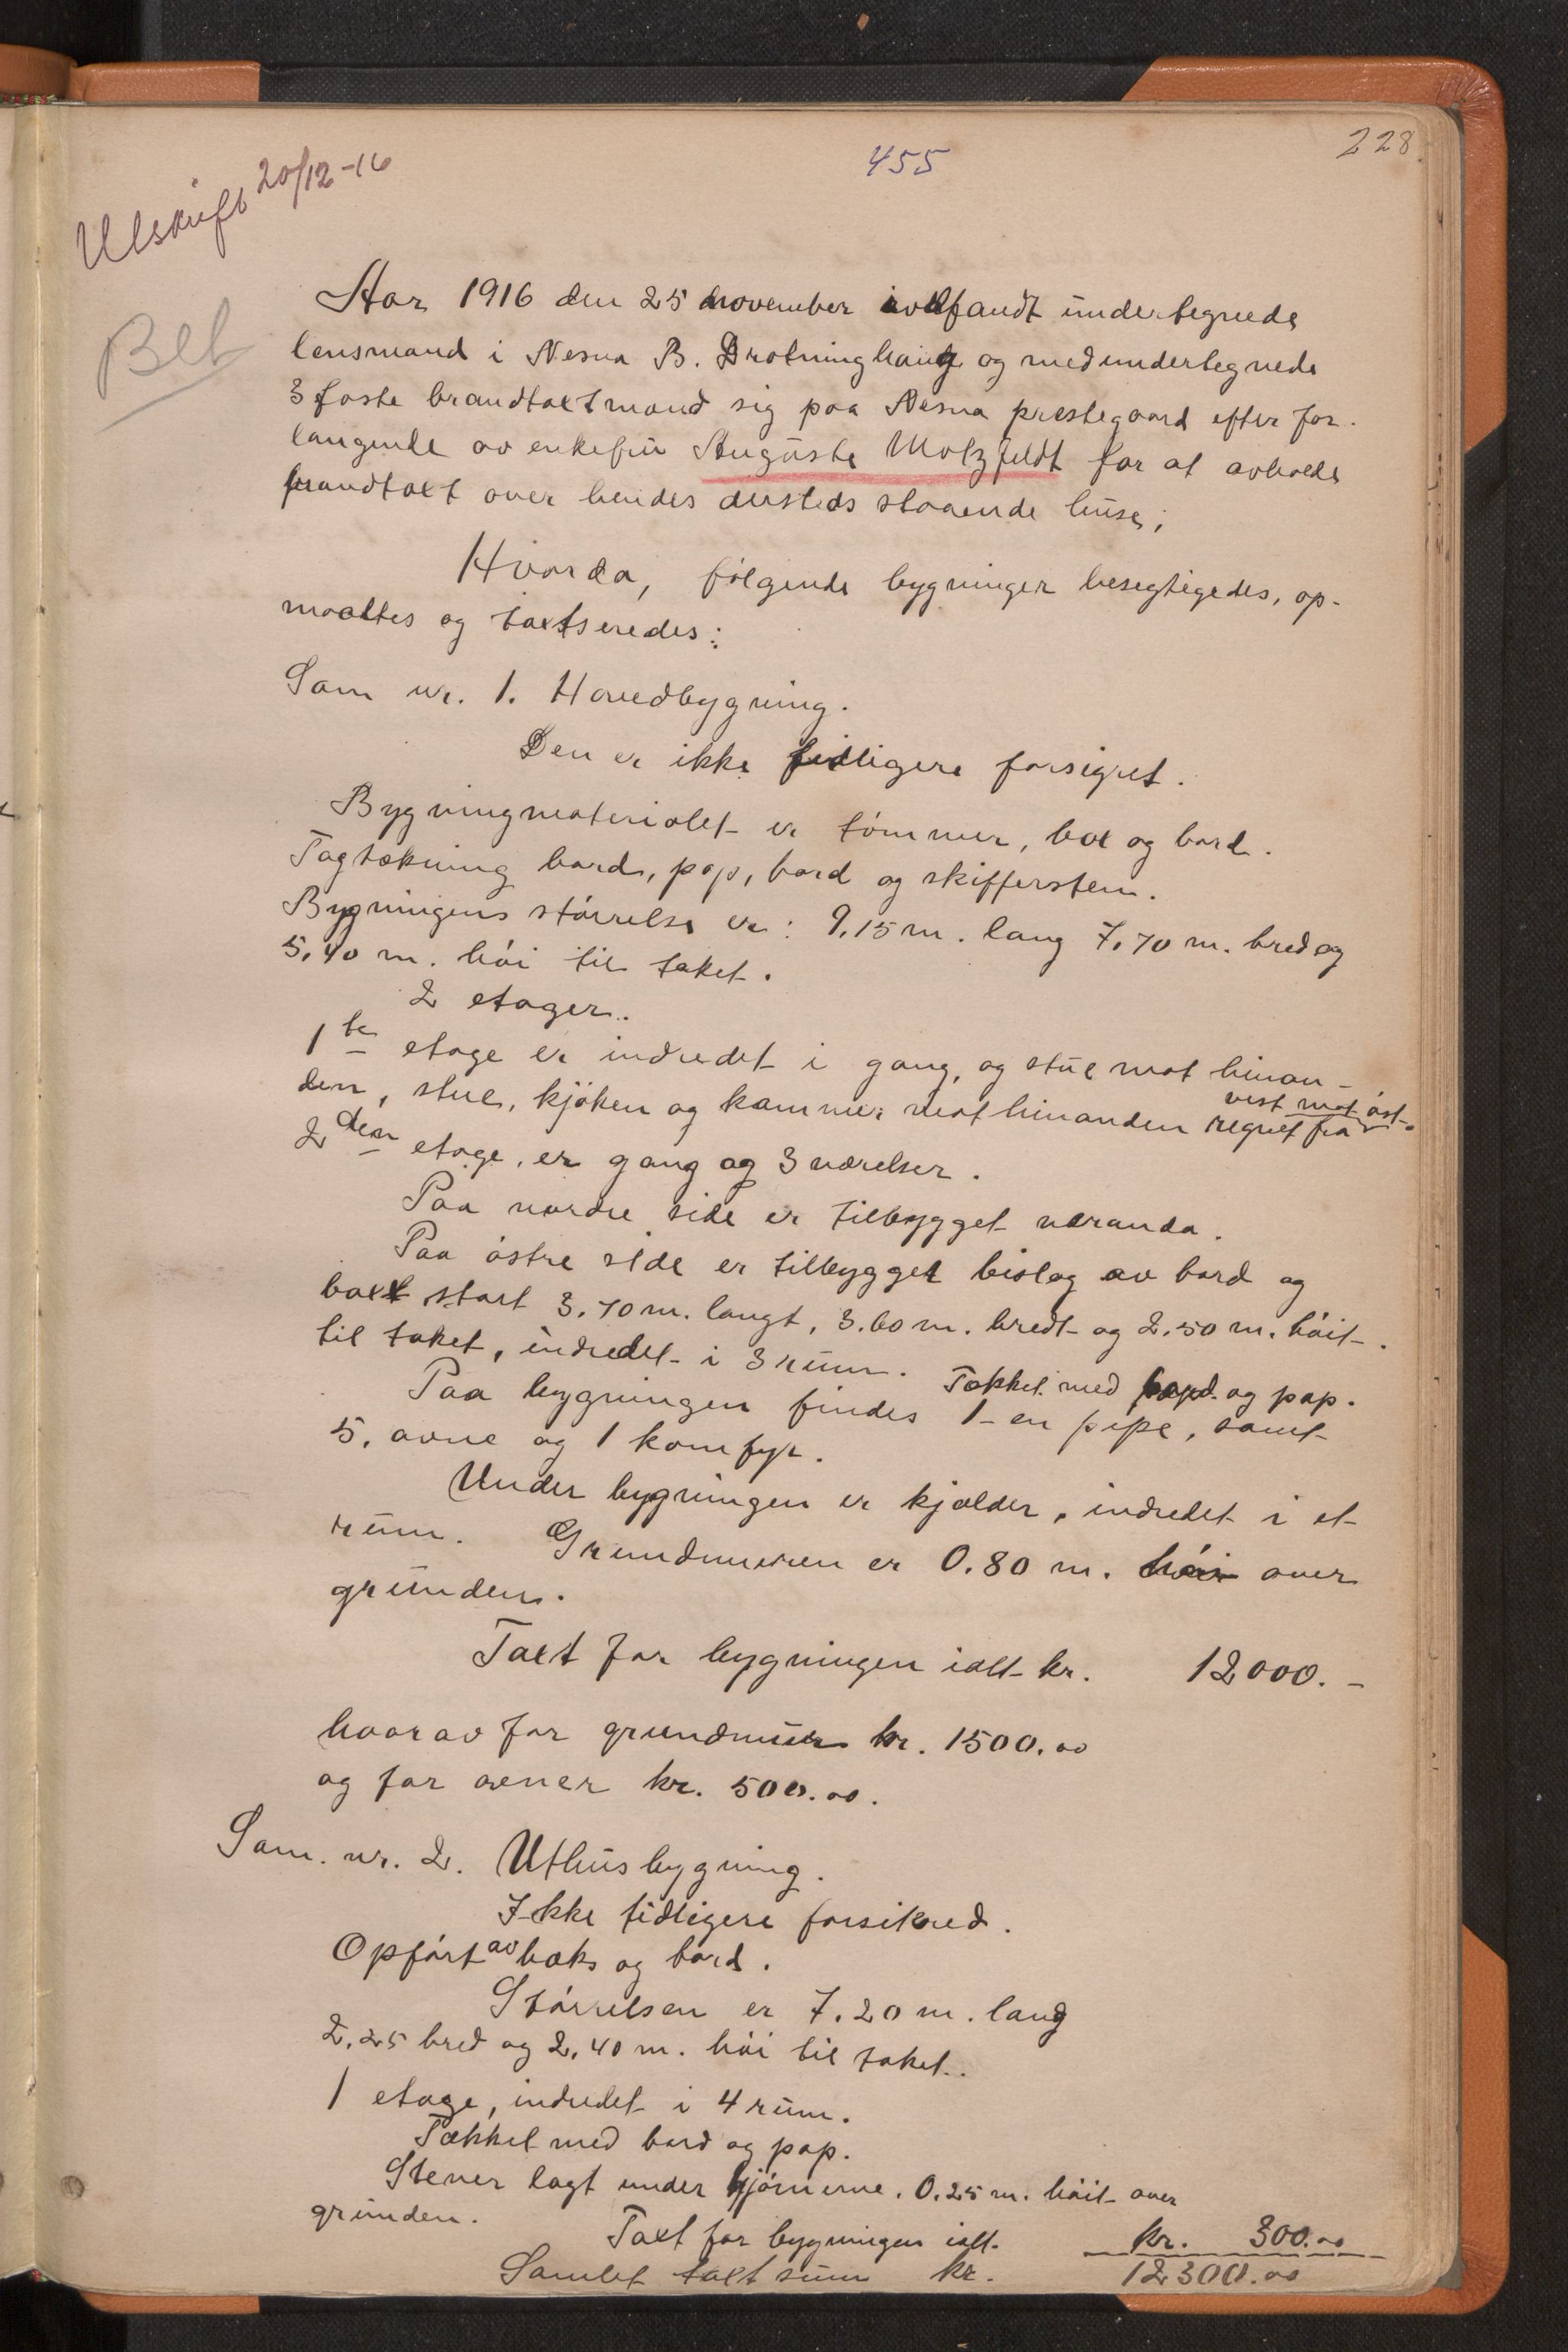 228
455
Utskrift 20/12-16
Bet
Aar 1916 den 25 november indfandt undertegnede
lensmand i Nesna B. Drotninghaug og medundertegnede
3 faste brandtaxtmænd sig paa Nesna prestegaard efter for-
langende av enkefru Auguste Motzfeldt for at avholde
brandtaxt over hendes dersteds staaende huse;
Hvorda, følgende bygninger besegtigedes, op-
maaltes og taxtseredes:
Som nr. 1. Hovedbygning.
Den er ikke tidligere forsigret.
Bygningmaterialet er tømmer, box og bord.
Tagtækning bord, pap, bord og skiffersten.
Bygningens størrelse er: 9,15 m. lang 7,70 m. bred og
5,40 m. høi til taket.
2 etager.
1te etage er indredet i gang, og stue mot hinan-
den, stue, kjøken og kammer mot hinanden regnet fra vest mot øst.
2den etage, er gang og 3 værelser.
Paa nordre side er tilbygget veranda.
Paa østre side er tilbygget bislag av bord og
box stort 3,70 m. langt, 3.60 m. bredt og 2.50 m. høit
til taket, indredet i 3 rum. Tækket med bord og pap.
Paa bygningen findes 1-en pipe, samt
5. ovne og 1 komfyr.
Under bygningen er kjælder, indredet i et
rum. Grundmuren er 0.80 m. høi over
grunden.
Taxt for bygningen ialt kr. 12000.-
hvorav for grundmur kr. 1500.00
og for ovner kr. 500.00.
Som nr. 2. Uthusbygning.
Ikke tidligere forsikred.
Opført av boks og bord.
Størrelsen er 7.20 m. lang
2,25 bred og 2,40 m. høi til taket.
1 etage, indredet i 4 rum.
Tækket med bord og pap.
Stener lagt under hjørnerne. 0.25 m. høit over
grunden.
Taxt for bygningen ialt kr. 300.00
Samlet taxt sum kr. 12300.00